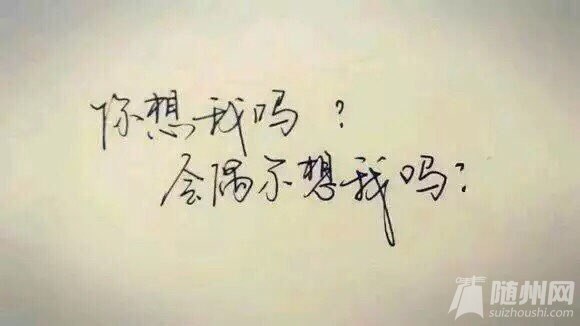 你想我吗？
会偶尔想我吗？
随州网
suizhoushi.com